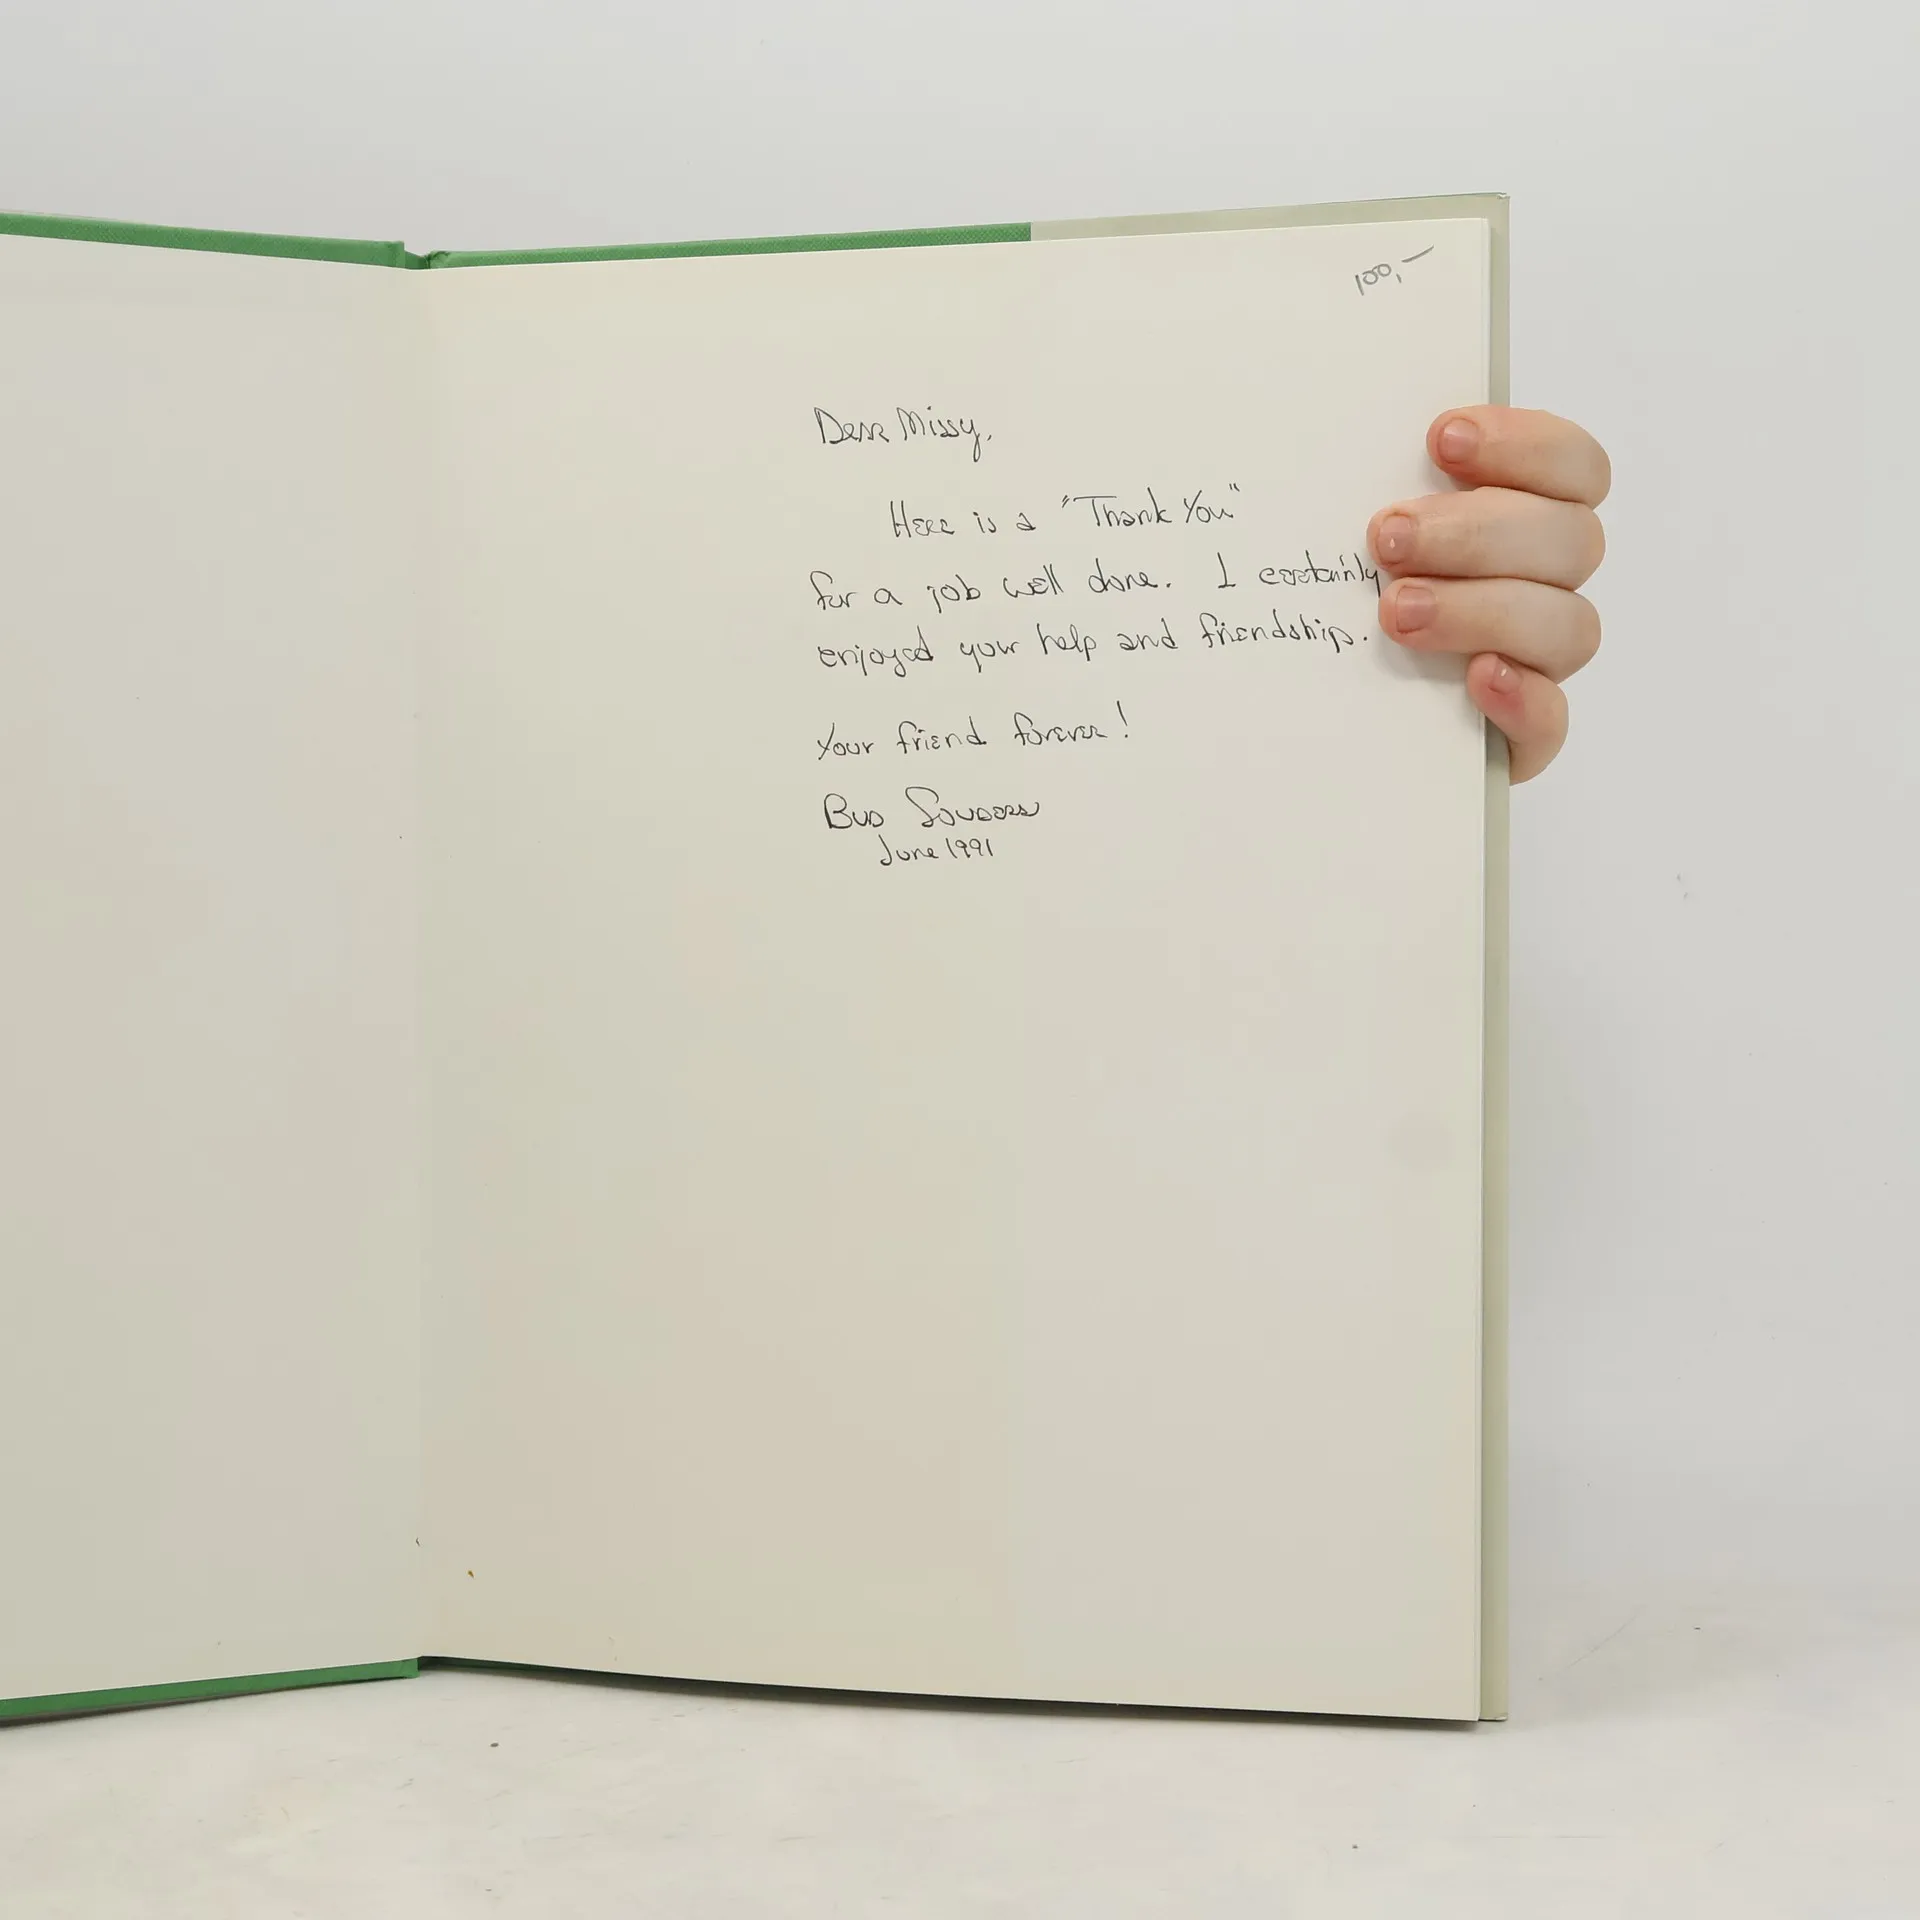 100,-
Dear Missy,
Here is a "Thank You"
for a job well done. I certainly
enjoyed your help and friendship.
Your friend forever!
Bud Souders
June 1991